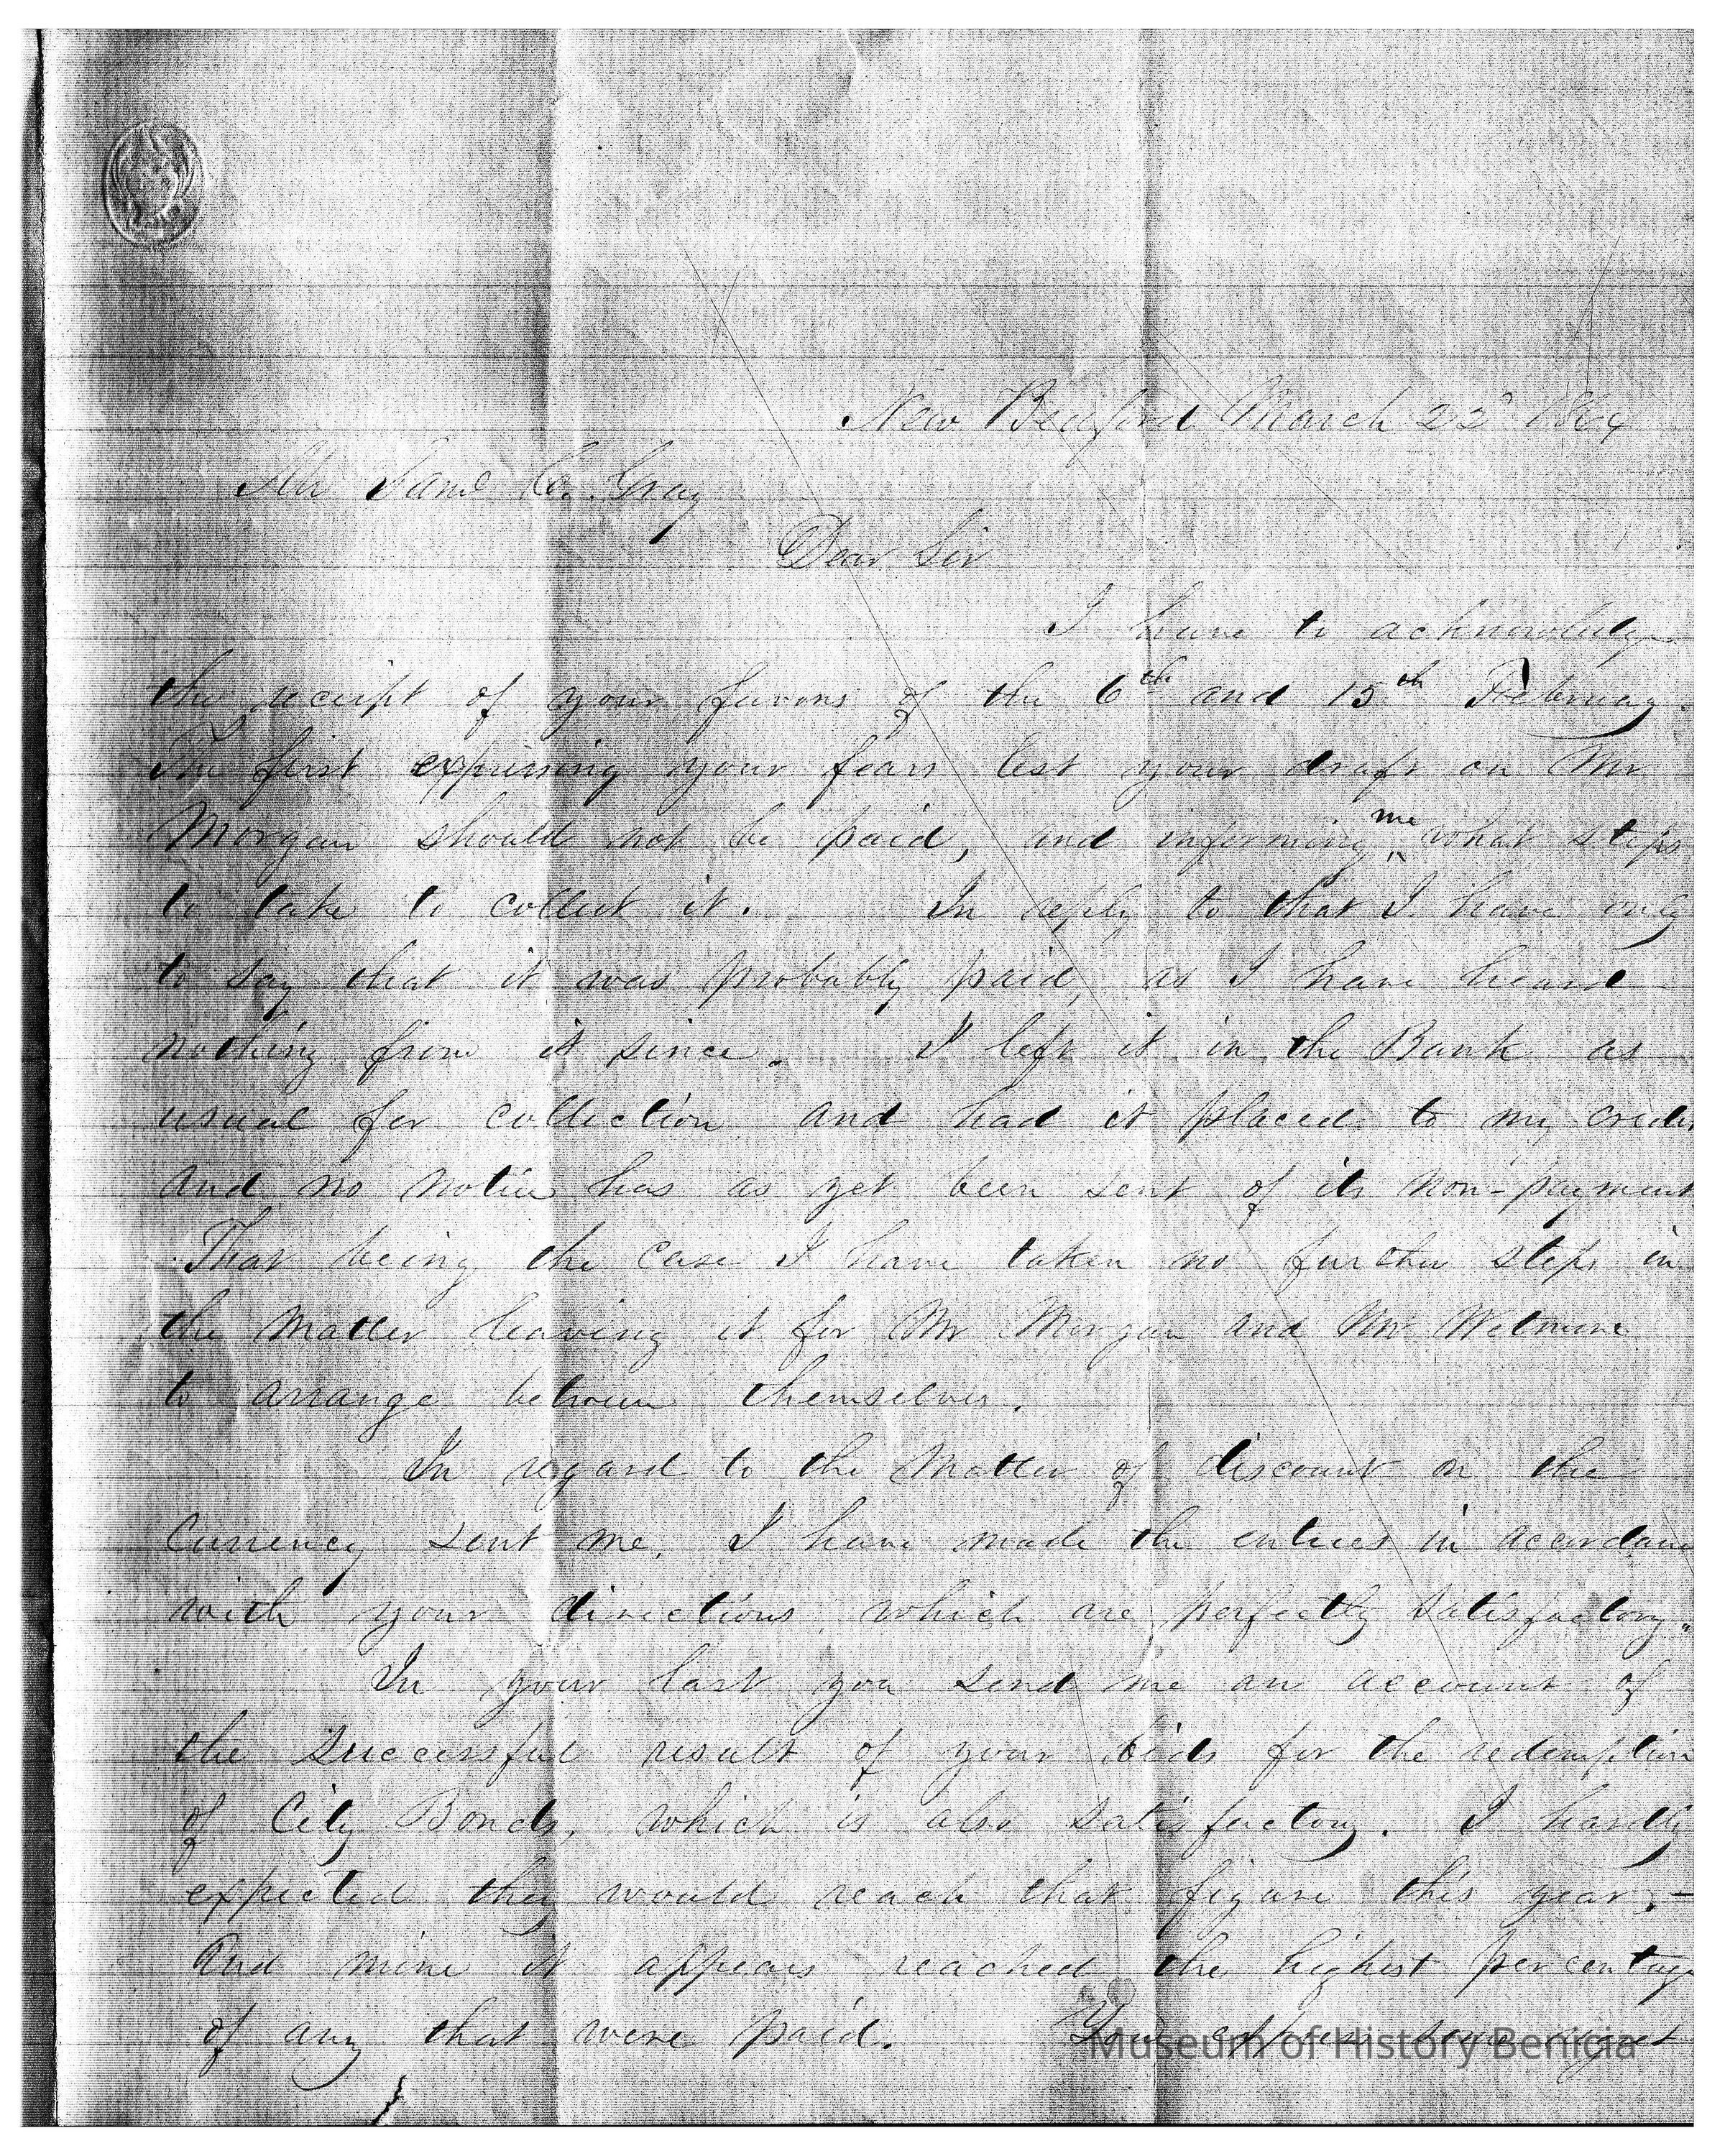 New Bedford March 22d 1864
Mr Saml C. Gray
Dear Sir
I have to acknowledge
the receipt of your favors of the 6th and 15th February.
The first expressing your fears lest your draft on Mr
Morgan should not be paid, and informing me what steps
to take to collect it. In reply to that I have only
to say that it was probably paid, as I have heard
nothing from it since. I left it in the Bank as
usual for collection and had it placed to my credit
and no notice has as yet been sent of its non-payment
That being the case I have taken no further steps in
the matter leaving it for Mr Morgan and Mr
to arrange between themselves.
In regard to the matter of discount on the
Currency sent me, I have made the entries in accordance
with your directions which are perfectly satisfactory.
In your last you send me an account of
the successful result of your bids for the redemption
of City Bonds, which is also satisfactory. I hardly
expected they would reach that figure this year,—
And mine it appears reached the highest percentage
of any that were paid. You express some regret
Museum of History Benicia